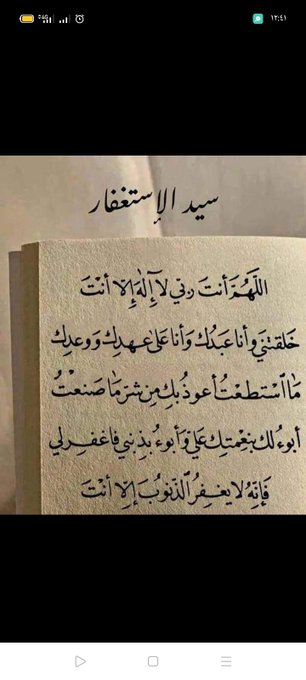 ١٢:٤١
سيد الإستغفار
اللَّهُمَّ أَنْتَ رَبِّي لَا إِلٰهَ إِلَّا أَنْتَ
خَلَقْتَنِي وَأَنَا عَبْدُكَ وَأَنَا عَلَىٰ عَهْدِكَ وَوَعْدِكَ
مَا اسْتَطَعْتُ أَعُوذُ بِكَ مِنْ شَرِّ مَا صَنَعْتُ
أَبُوءُ لَكَ بِنِعْمَتِكَ عَلَيَّ وَأَبُوءُ بِذَنْبِي فَاغْفِرْ لِي
فَإِنَّهُ لَا يَغْفِرُ الذُّنُوبَ إِلَّا أَنْتَ